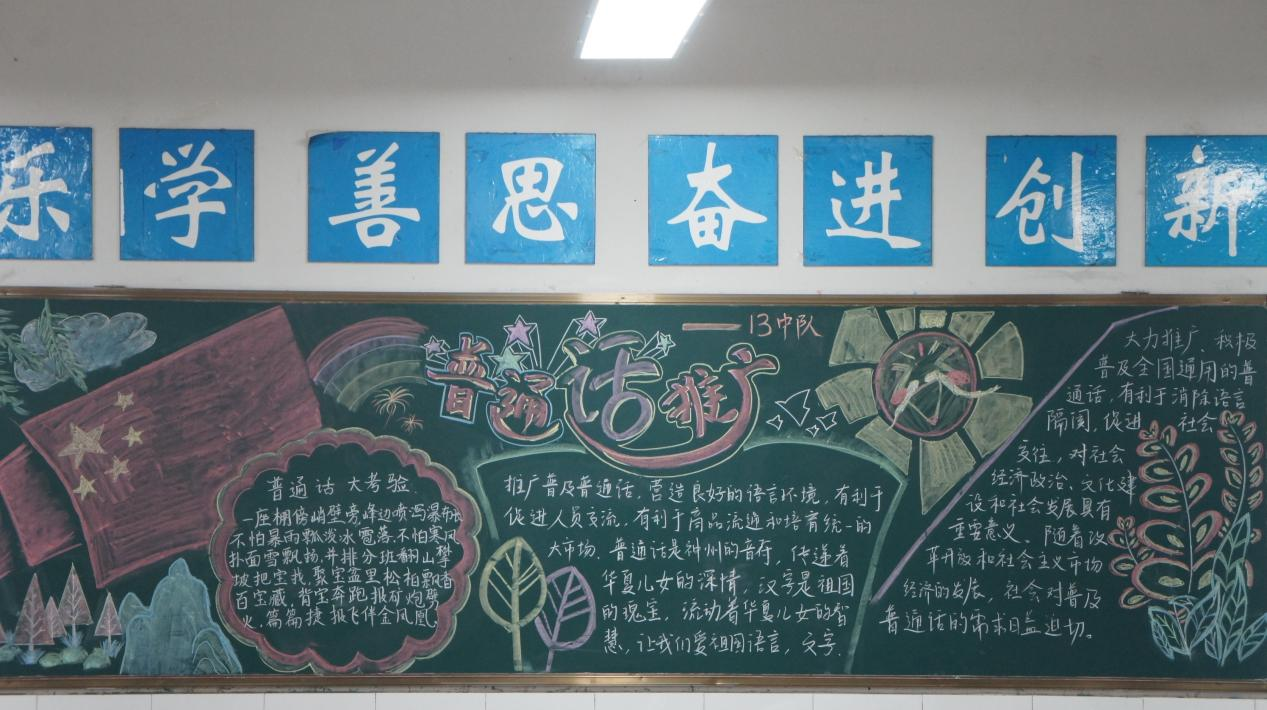 乐学 善思 奋进 创新
普通话推广
——13中队
普通话大考验
一座棚傍峭壁旁,峰边喷泻瀑布长
不怕暴雨瓢泼冰雹落,不怕寒风
扑面雪飘扬,并排分班翻山攀
坡把宝找,聚宝盆里松柏飘香
百宝藏,背宝奔跑报矿炮劈
火,篇篇捷报飞伴金凤凰。
推广普及普通话,营造良好的语言环境,有利于
促进人员交流,有利于商品流通和培育统一的
大市场。普通话是神州的音符,传递着
华夏儿女的深情,汉字是祖国
的瑰宝,流动着华夏儿女的智
慧,让我们爱祖国语言,文字。
大力推广、积极
普及全国通用的普
通话,有利于消除语言
隔阂,促进 社会
交往,对社会
经济政治、文化建
设和社会发展具有
重要意义。随着改
革开放和社会主义市场
经济的发展,社会对普及
普通话的需求日益迫切。